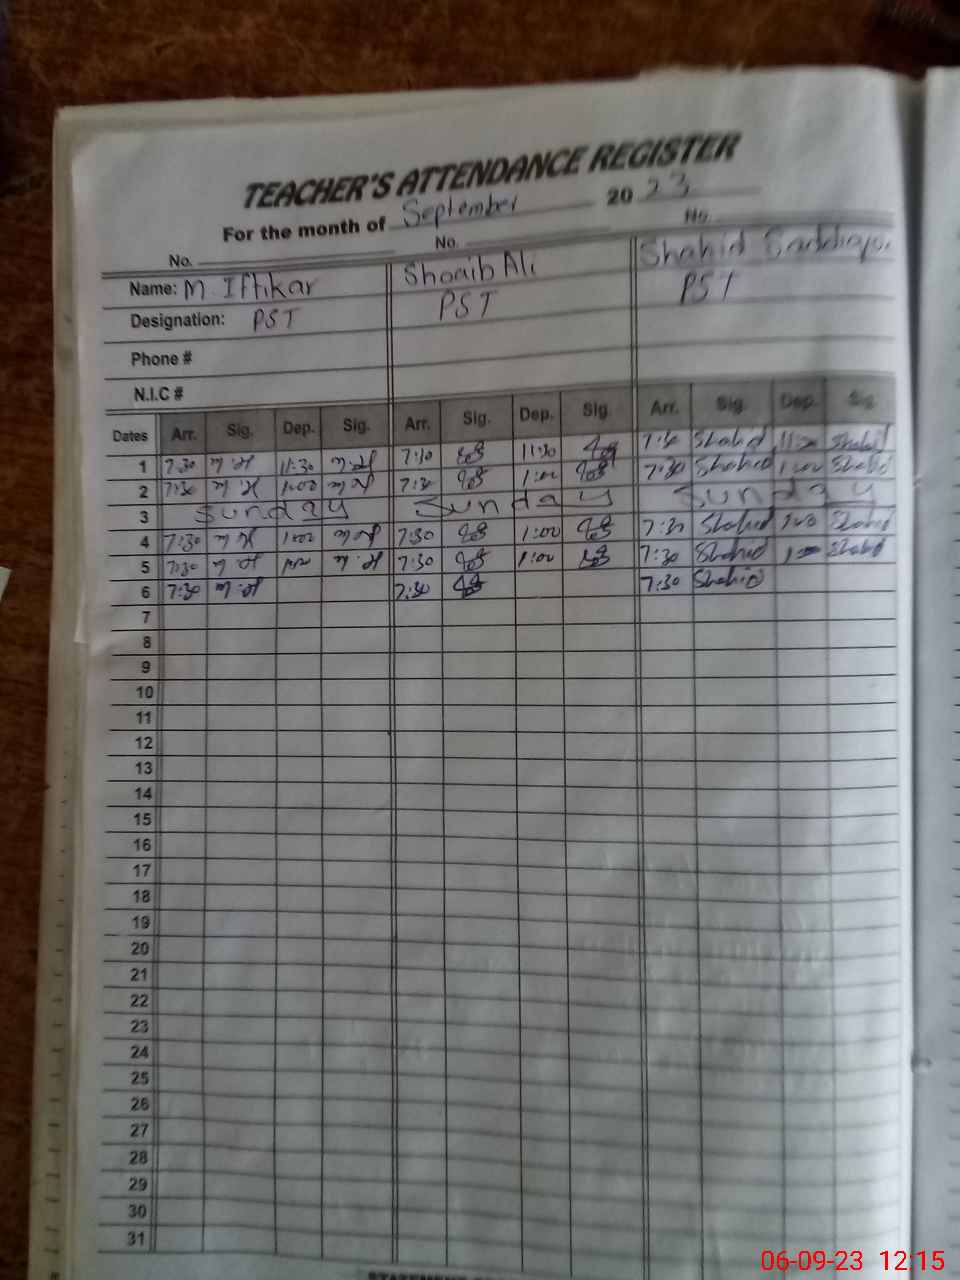 TEACHER'S ATTENDANCE REGISTER
For the month of September 2023
No. No. No.
Name: M. Iftikar Shoaib Ali Shahid
Designation: PST PST PST
Phone #
N.I.C #
Dates Arr. Sig. Dep. Sig. Arr. Sig. Dep. Sig. Arr. Sig. Dep. Sig.
1 7:30 11:30 7:10 11:30 7:30 Shahid Shahid
2 7:30 1:00 7:30 1:00 7:30 Shahid 1:00 Shahid
3 Sunday Sunday Sunday
4 7:30 1:00 7:30 1:00 7:30 Shahid Shahid
5 7:30 7:30 1:00 7:30 Shahid Shahid
6 7:30 7:30 7:30 Shahid
7
8
9
10
11
12
13
14
15
16
17
18
19
20
21
22
23
24
25
26
27
28
29
30
31
06-09-23 12:15